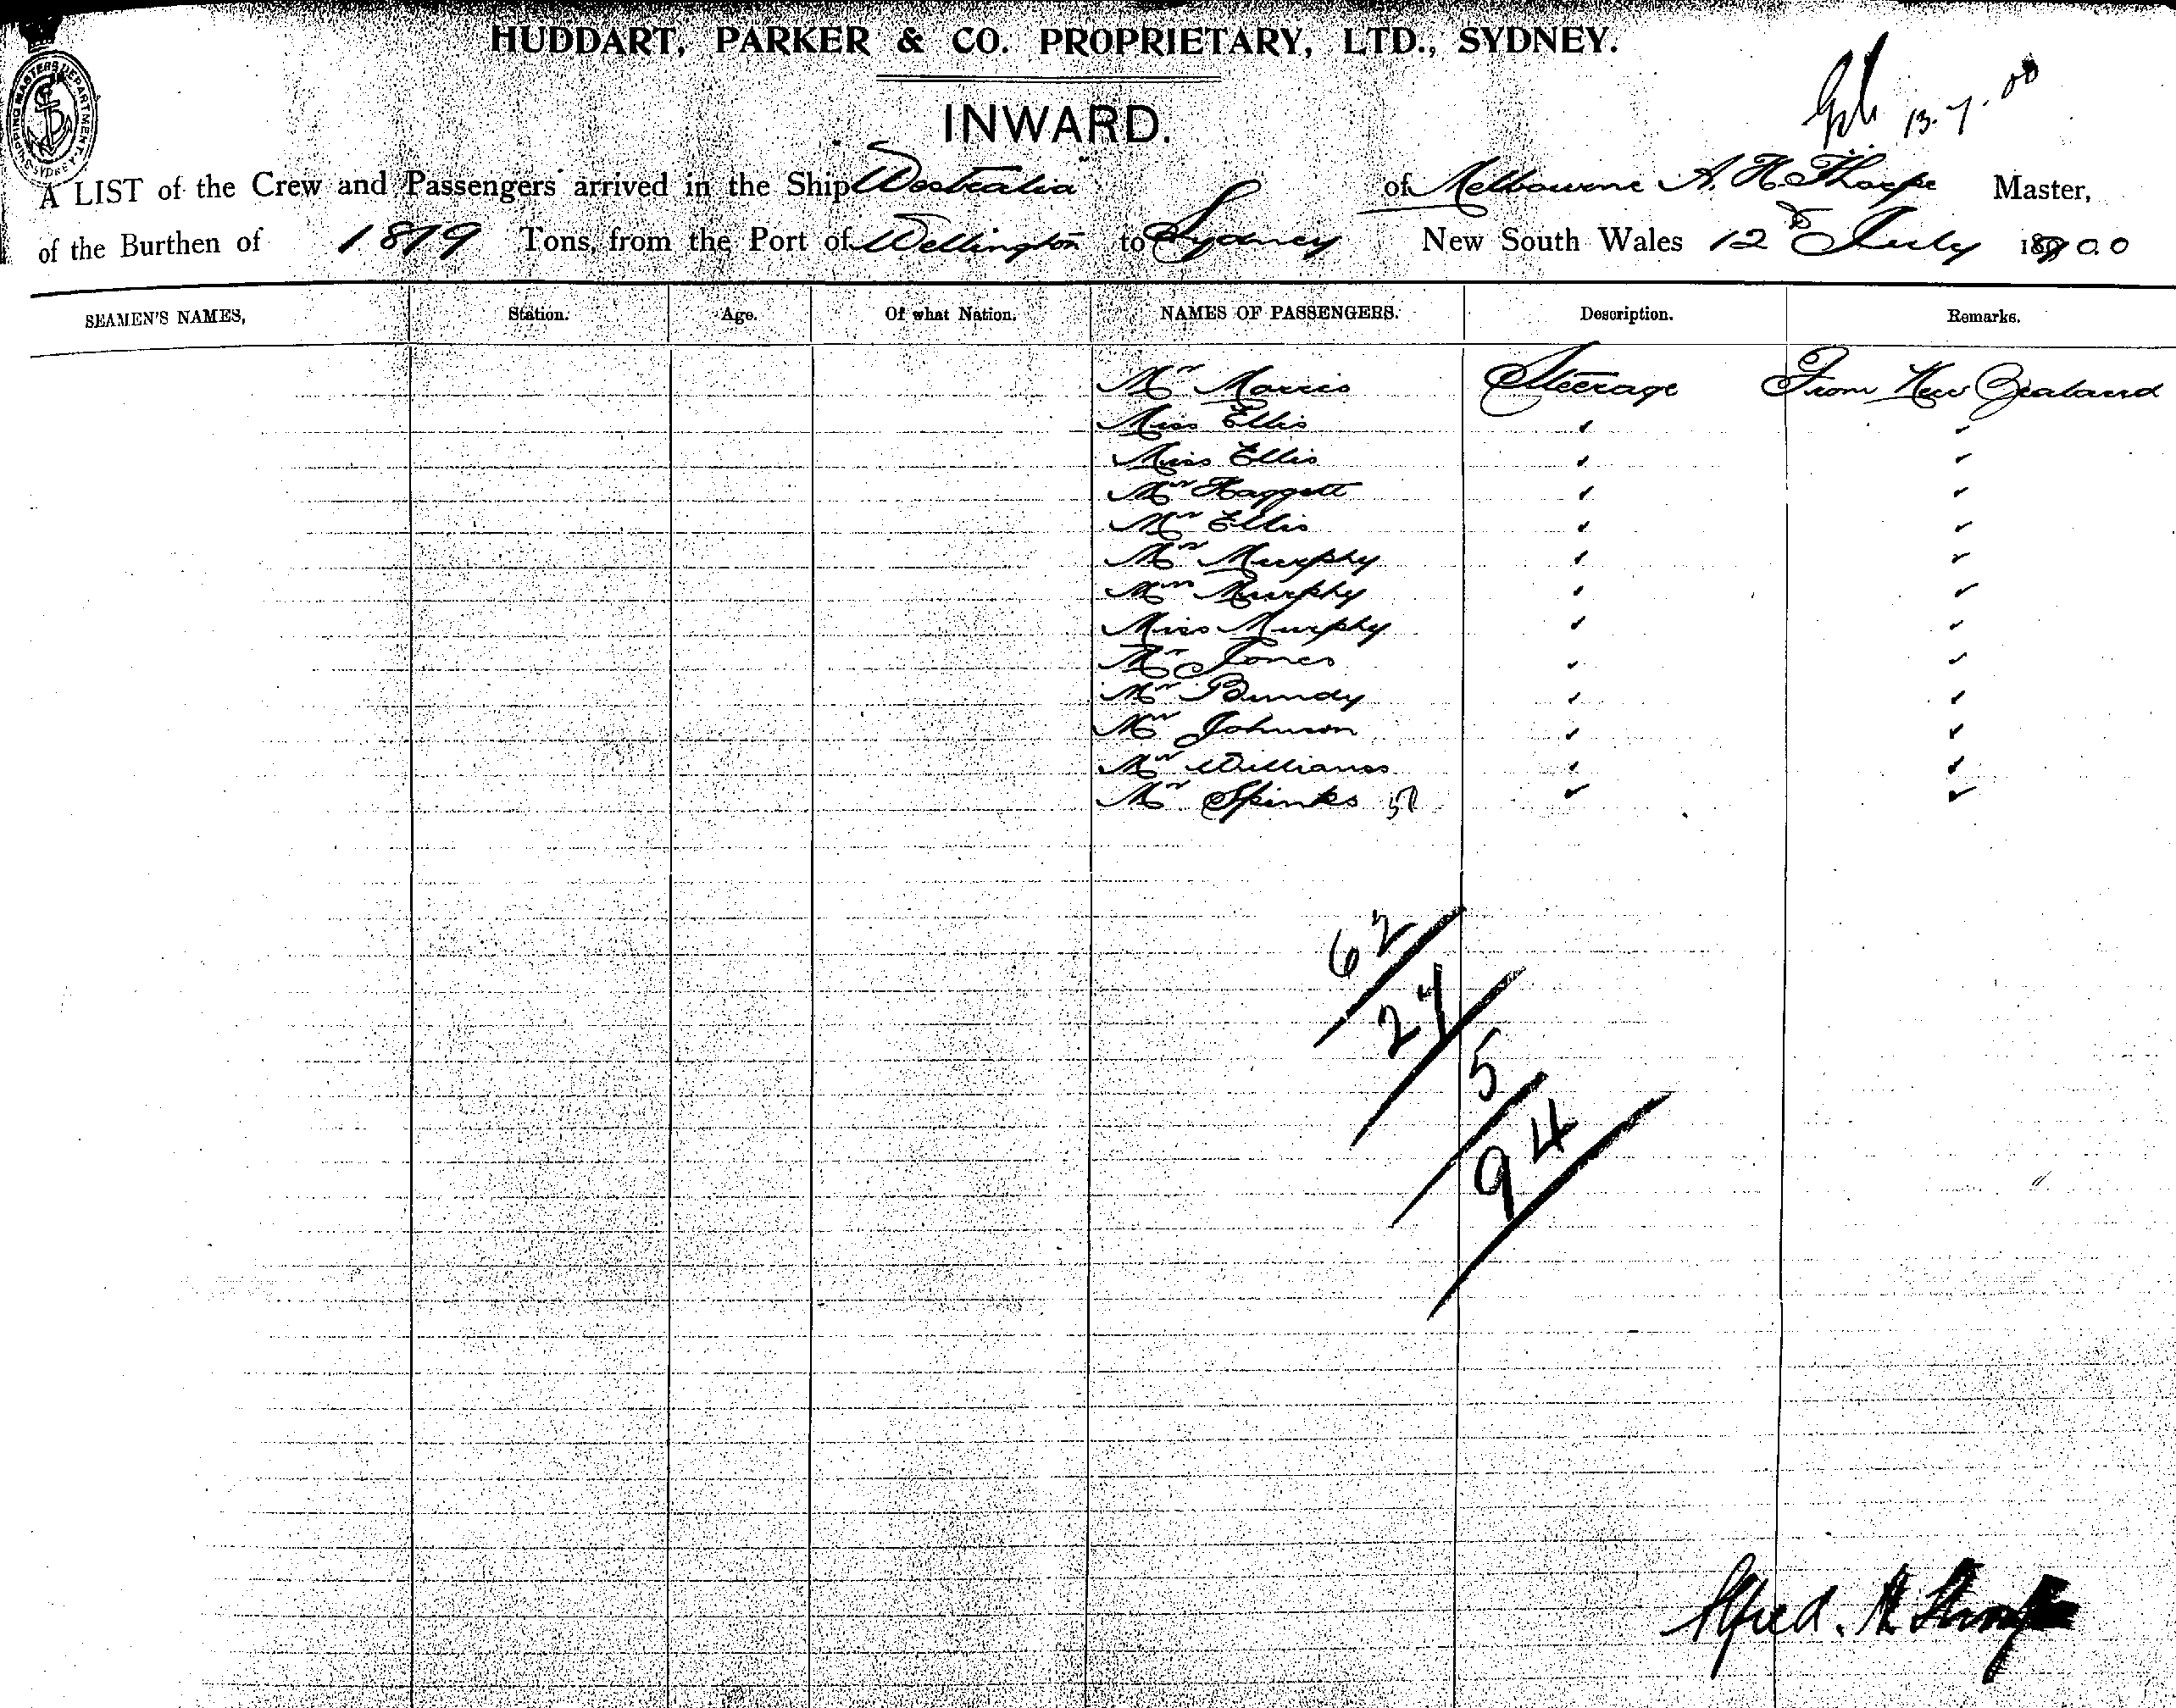 HUDDART, PARKER & CO. PROPRIETARY, LTD., SYDNEY.
13.7.00
INWARD.
SHIPPING MASTERS DEPARTMENT SYDNEY
A LIST of the Crew and Passengers arrived in the Ship "Westralia" of Melbourne A. H. Thorpe Master,
of the Burthen of 1819 Tons, from the Port of Wellington to Sydney New South Wales 12th July 1900
SEAMEN'S NAMES, Station. Age. Of what Nation. NAMES OF PASSENGERS. Description. Remarks.
Mr Morris Steerage From New Zealand
Miss Ellis ✓ ✓
Miss Ellis ✓ ✓
Mr Haggett ✓ ✓
Mr Ellis ✓ ✓
Mr Murphy ✓ ✓
Mrs Murphy ✓ ✓
Miss Murphy ✓ ✓
Mr Jones ✓ ✓
Mr Bundy ✓ ✓
Mr Johnson ✓ ✓
Mr Williams ✓ ✓
Mr Spinks ✓ ✓
62
27
5
94
Alfred. H. Thorpe